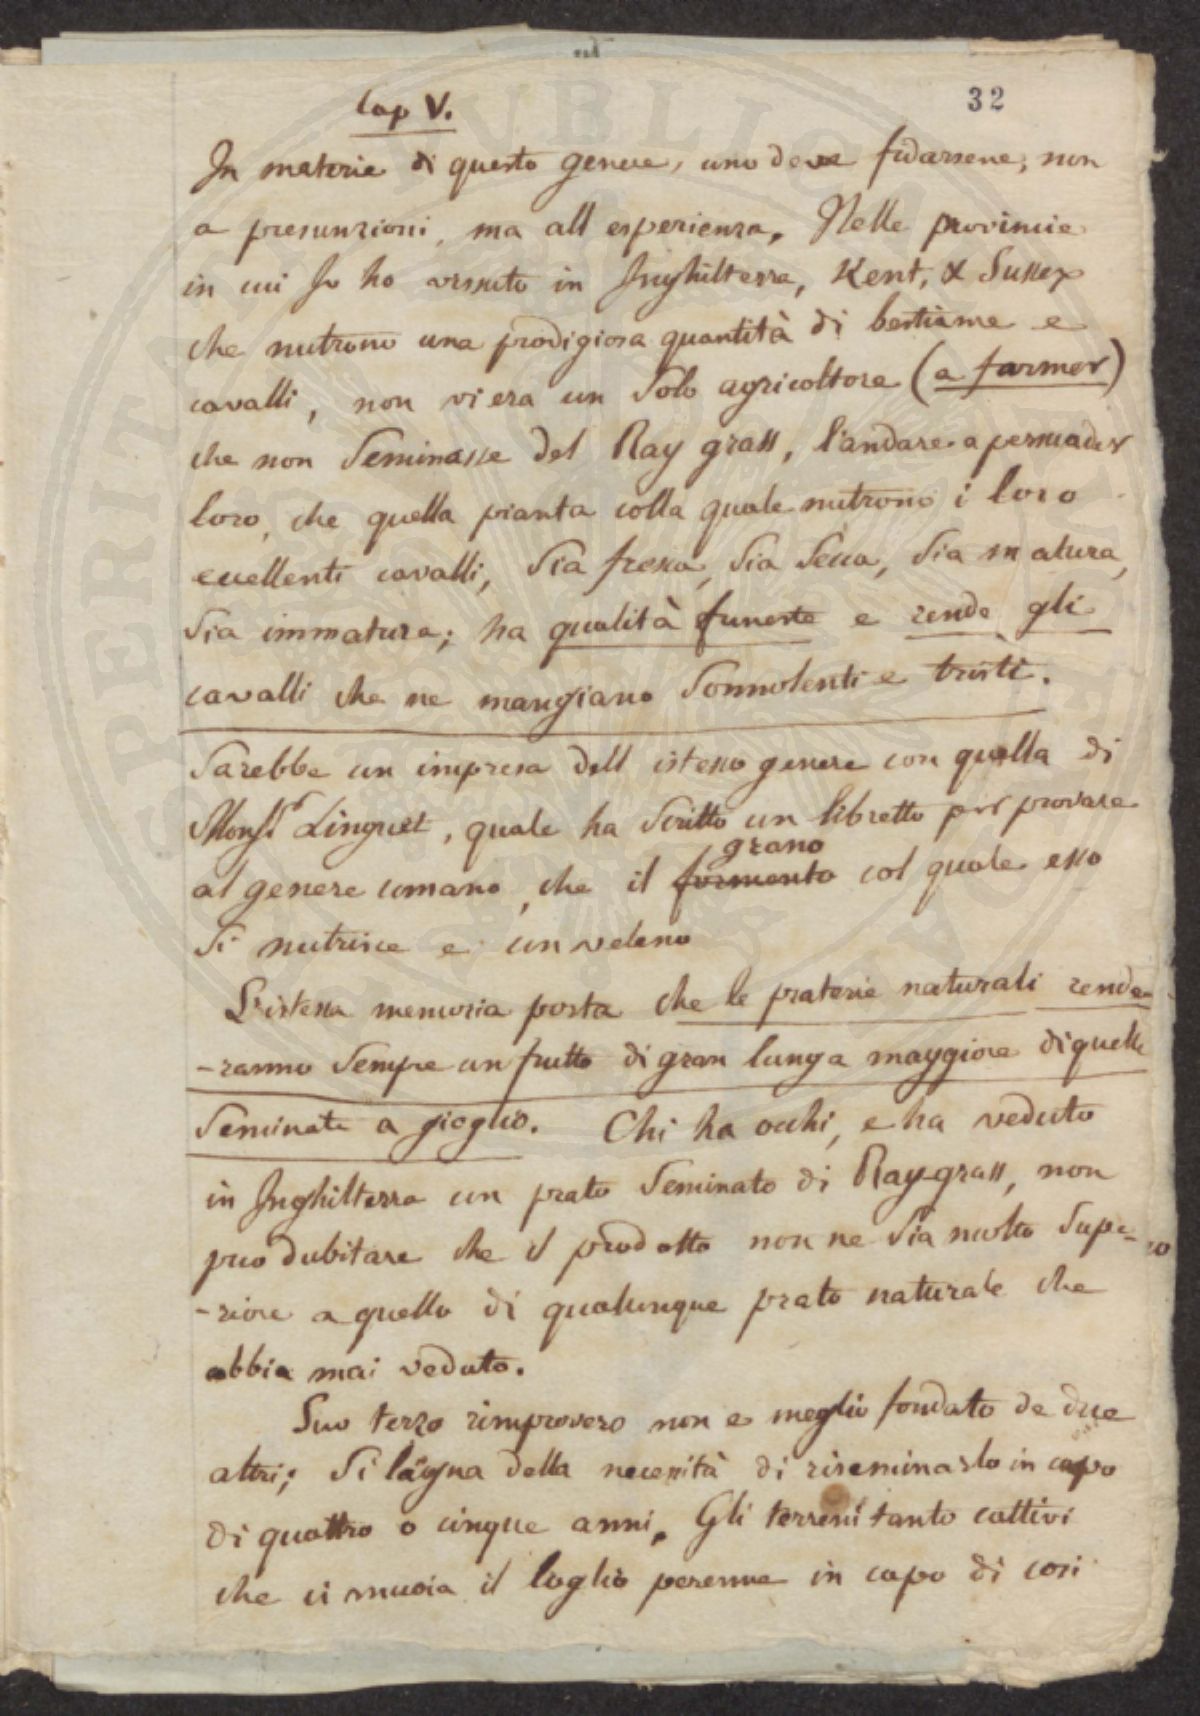 32
Cap V.
In materie di questo genere, uno deve fidarsene, non
a presunzioni, ma all esperienza. Nelle provincie
in cui Io ho vissuto in Inghilterra, Kent, & Sussex
che nutrono una prodigiosa quantità di bestiame e
cavalli, non vi era un Solo agricoltore (a farmer)
che non Seminasse del Ray grass, l'andare a persuader
loro, che quella pianta colla quale nutrono i loro
eccellenti cavalli, Sia fresca, Sia Secca, Sia matura,
Sia immatura; ha qualità funeste e rende gli
cavalli che ne mangiano Sonnolenti e tristi.
Sarebbe un impresa dell istesso genere con quella di
Monsr Linguet, quale ha Scritto un libretto per provare
al genere umano, che il formento grano col quale esso
Si nutrisce e un veleno
L'istessa memoria porta che le praterie naturali rende-
-ranno Sempre un frutto di gran lunga maggiore di quelle
Seminate a gioglio. Chi ha occhi, e ha veduto
in Inghilterra un prato Seminato di Ray-grass, non
puo dubitare che il prodotto non ne Sia molto Supe-
-riore a quello di qualunque prato naturale che
abbia mai veduto.
Suo terzo rimprovero non e meglio fondato de due
altri; Si lagna della necessità di riseminarlo in capo
di quattro o cinque anni. Gli terreni tanto cattivi
che ci muoia il loglio perenne in capo di cosi